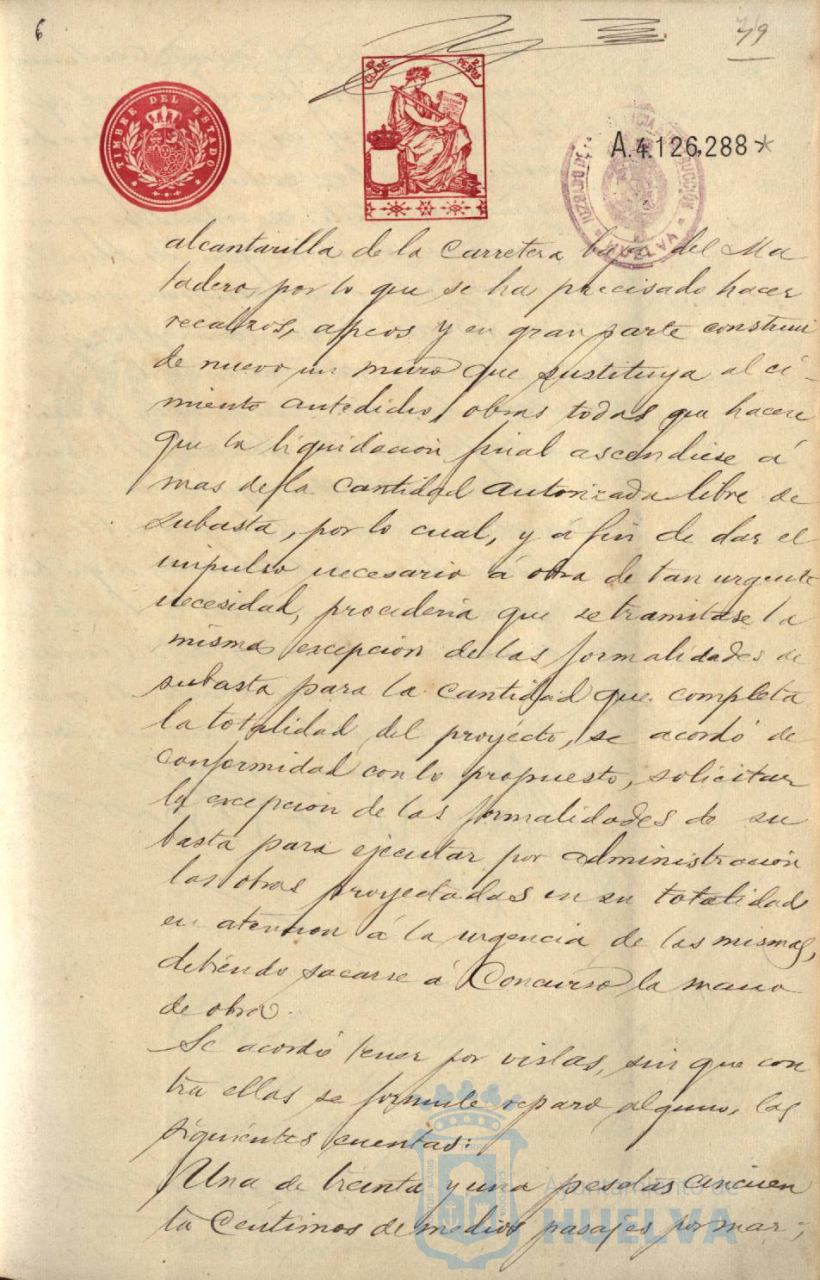 6
7/9
TIMBRE DEL ESTADO
CLASE
PESTAS
A.4.126,288*
JUZGADO DE
HUELVA
alcantarilla de la Carretera del Ma
tadero, por lo que se ha precisado hacer
recalzos, apeos y en gran parte construir
de nuevo un muro que sustituya al ci-
miento antedicho, obras todas que hacen
que la liquidacion final ascendiese á
mas de la cantidad autorizada libre de
subasta, por lo cual, y á fin de dar el
impulso necesario á obra de tan urgente
necesidad, procederia que se tramitase la
misma excepción de las formalidades de
subasta para la cantidad que completa
la totalidad del proyécto, se acordó de
conformidad con lo propuesto, solicitar
la excepción de las formalidades de su
basta para ejecutar por administración
las obras proyectadas en su totalidad
en atencion á la urgencia de las mismas,
debiendo sacarse á Concurso la mano
de obra.
Se acordó tener por vistas, sin que con
tra ellas se formule reparo alguno, las
siguientes cuentas:
Una de treinta y una pesetas cincuen
ta Céntimos de medios pasajes por mar;
Ayuntamiento de
HUELVA